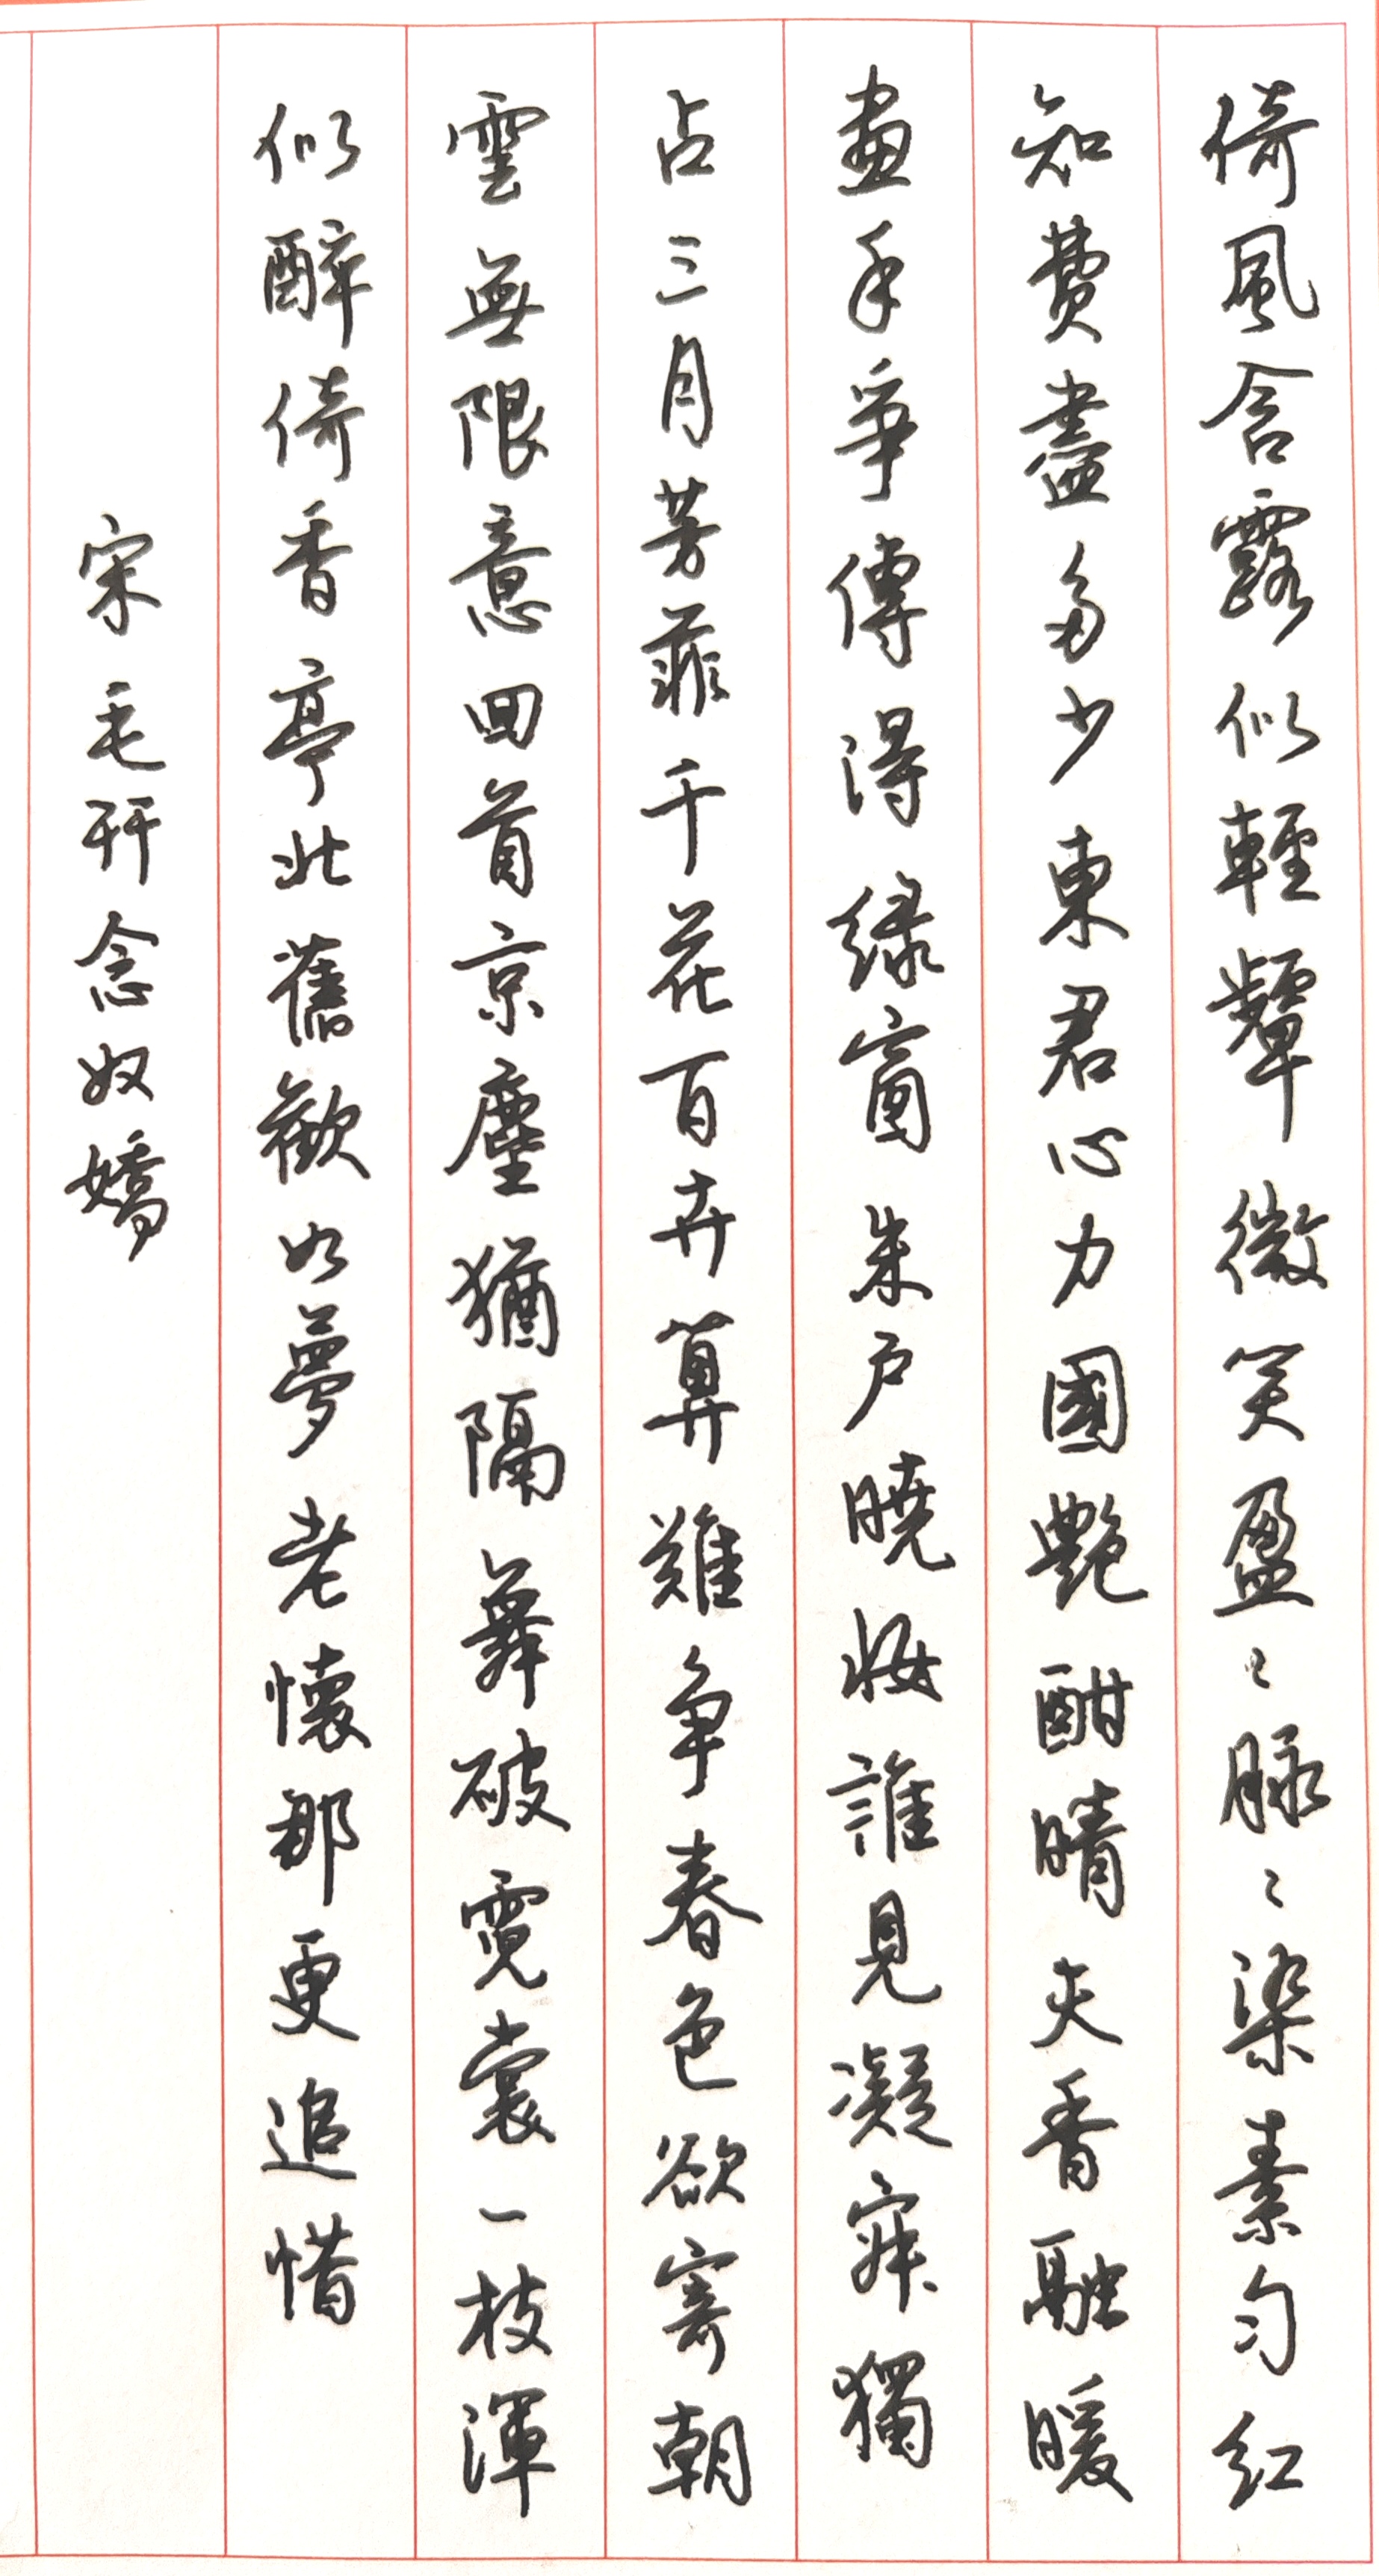 倚風含露似輕顰微笑盈〻脉〻染素勻紅
知費盡多少東君心力國艷酣晴天香融暖
畫手爭傳得緑窗朱戶曉妝誰見凝寂獨
占三月芳菲千花百卉算難争春色欲寄朝
雲無限意回首京塵猶隔舞破霓裳一枝渾
似醉倚香亭北舊歡如夢老懷那更追惜
宋毛幵念奴嬌